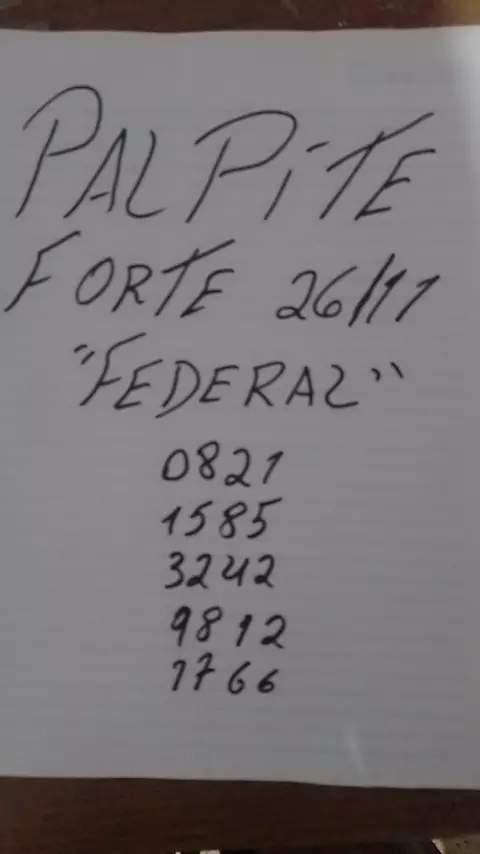 PALPITE
FORTE 26/11
"FEDERAL"
0821
1585
3242
9812
1766